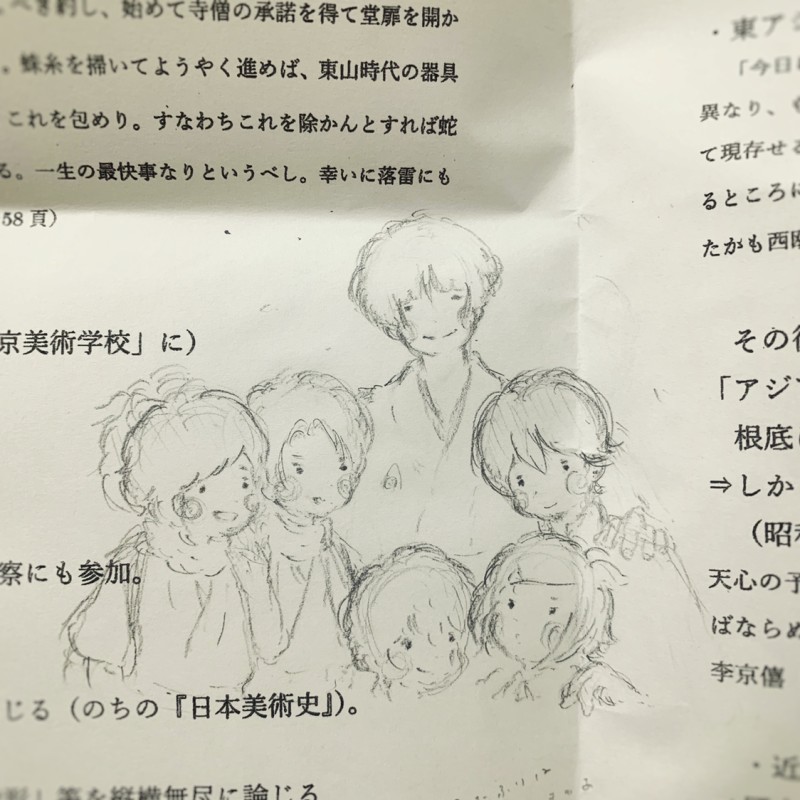 べき約し、始めて寺僧の承諾を得て堂扉を開か
。蛛糸を掃いてようやく進めば、東山時代の器具
これを包めり。すなわちこれを除かんとすれば蛇
る。一生の最快事なりというべし。幸いに落雷にも
58 頁）
京美術学校」に）
察にも参加。
じる（のちの『日本美術史』）。
等を縦横無尽に論じる
・東ア
「今日
異なり、
て現存せ
るところに
たがも西
その
「アジ
根底
⇒しか
（昭
天心の予
ばならぬ
李京僖
・近